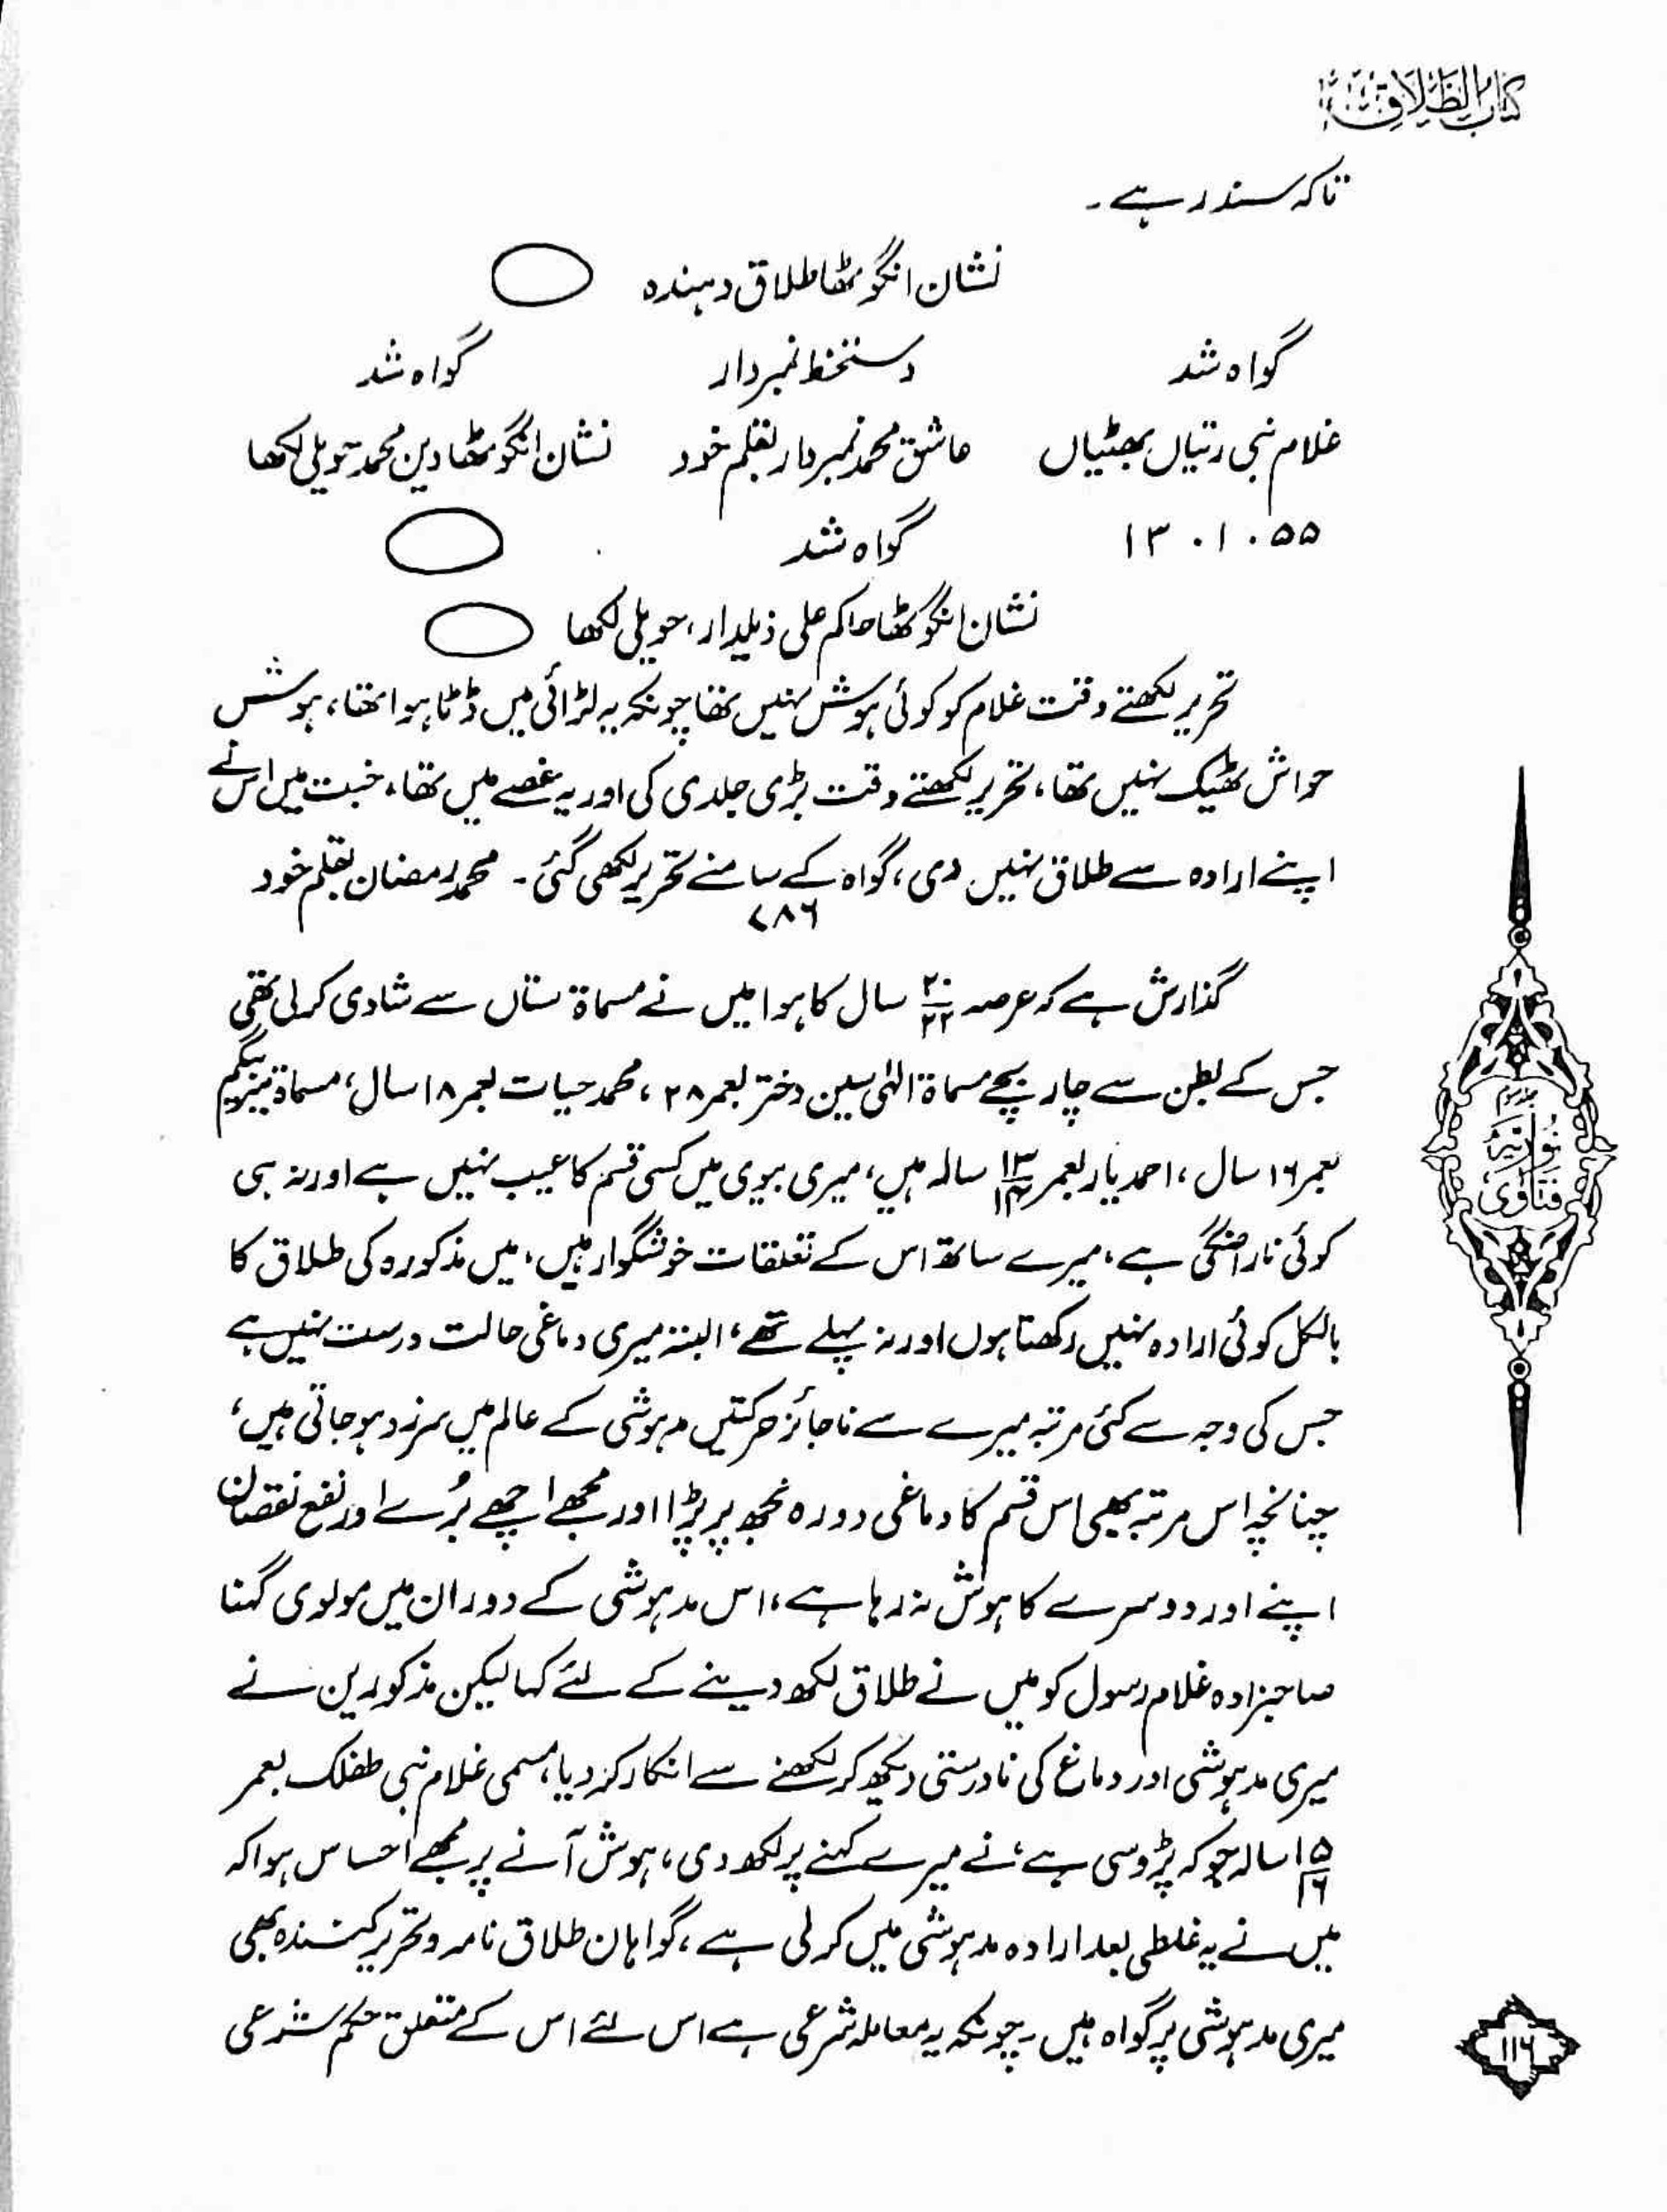 كتاب الطلاق
تاکہ سند رہے۔
نشان انگوٹھا طلاق دہندہ
گواہ شد دستخط نمبردار گواہ شد
غلام نبی رتیاں بھٹیاں عاشق محمد نمبردار بقلم خود نشان انگوٹھا دین محمد حویلی لکھا
۱۳۔۱۔۵۵ گواہ شد
نشان انگوٹھا حاکم علی ذیلدار، حویلی لکھا
تحریر لکھتے وقت غلام کو کوئی ہوش نہیں تھا چونکہ یہ لڑائی میں ڈٹا ہوا تھا، ہوش
حواش ٹھیک نہیں تھا، تحریر لکھتے وقت بڑی جلدی کی اور یہ غصے میں تھا، خبت میں اس نے
اپنے ارادہ سے طلاق نہیں دی، گواہ کے سامنے تحریر لکھی گئی۔ محمد رمضان بقلم خود
۷۸۶
گذارش ہے کہ عرصہ ۲۰/۲۲ سال کا ہوا میں نے مسماۃ ستاں سے شادی کر لی تھی
جس کے بطن سے چار بچے مسماۃ الٰہی سین دختر بعمر ۲۸، محمد حیات بعمر ۱۸ سال، مسماۃ بیگم
بعمر ۱۶ سال، احمد یار بعمر ۱۳/۱۴ سالہ ہیں، میری بیوی میں کسی قسم کا عیب نہیں ہے اور نہ ہی
کوئی ناراضگی ہے، میرے ساتھ اس کے تعلقات خوشگوار ہیں، میں مذکورہ کی طلاق کا
بالکل کوئی ارادہ نہیں رکھتا ہوں اور نہ پہلے تھے، البتہ میری دماغی حالت درست نہیں ہے
جس کی وجہ سے کئی مرتبہ میرے سے ناجائز حرکتیں مدہوشی کے عالم میں سرزد ہو جاتی ہیں،
چنانچہ اس مرتبہ بھی اس قسم کا دماغی دورہ مجھ پر پڑا اور مجھے اچھے بُرے اور نفع نقصان
اپنے اور دوسرے کا ہوش نہ رہا ہے، اس مدہوشی کے دوران میں مولوی گہنا
صاحبزادہ غلام رسول کو میں نے طلاق لکھ دینے کے لئے کہا لیکن مذکورین نے
میری مدہوشی اور دماغ کی نادرستی دیکھ کر لکھنے سے انکار کر دیا، مسمی غلام نبی طفلک بعمر
۱۵/۱۶ سالہ جو کہ پڑوسی ہے، نے میرے کہنے پر لکھ دی، ہوش آنے پر مجھے احساس ہوا کہ
میں نے یہ غلطی بعد ارادہ مدہوشی میں کر لی ہے، گواہان طلاق نامہ و تحریر کنندہ بھی
میری مدہوشی پر گواہ ہیں۔ چونکہ یہ معاملہ شرعی ہے اس لئے اس کے متعلق حکم شرعی
نوریہ
فتاوی
۱۱۶